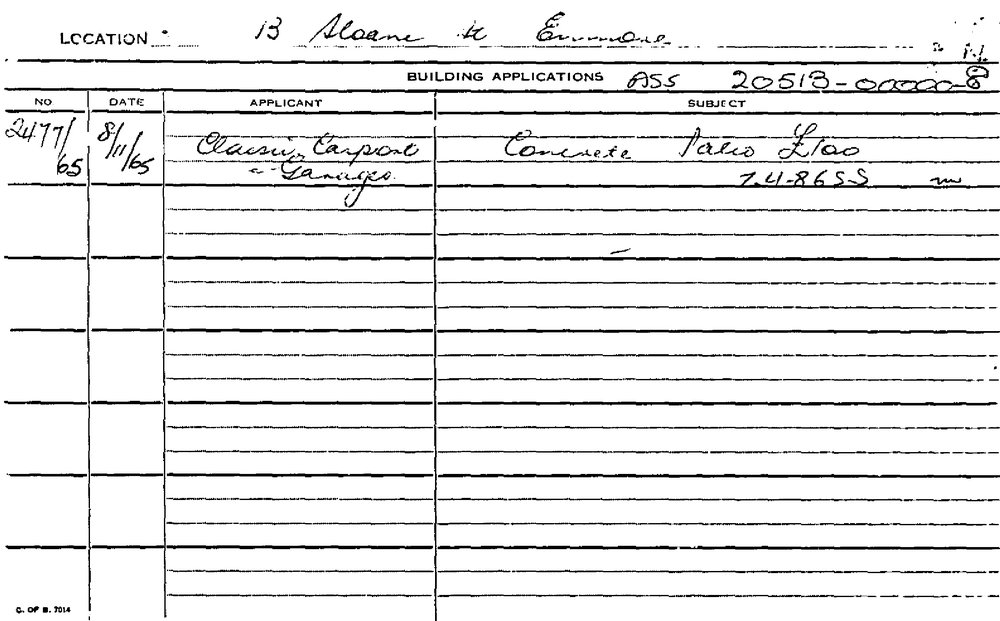 LOCATION 13 Sloane St Enmore
BUILDING APPLICATIONS ASS 20513-00000-8
NO DATE APPLICANT SUBJECT
2477/ 8/11/65 Classic Carport Concrete Patio £100
65 & Garages 7.4.86 SS
C. OF B. 7014